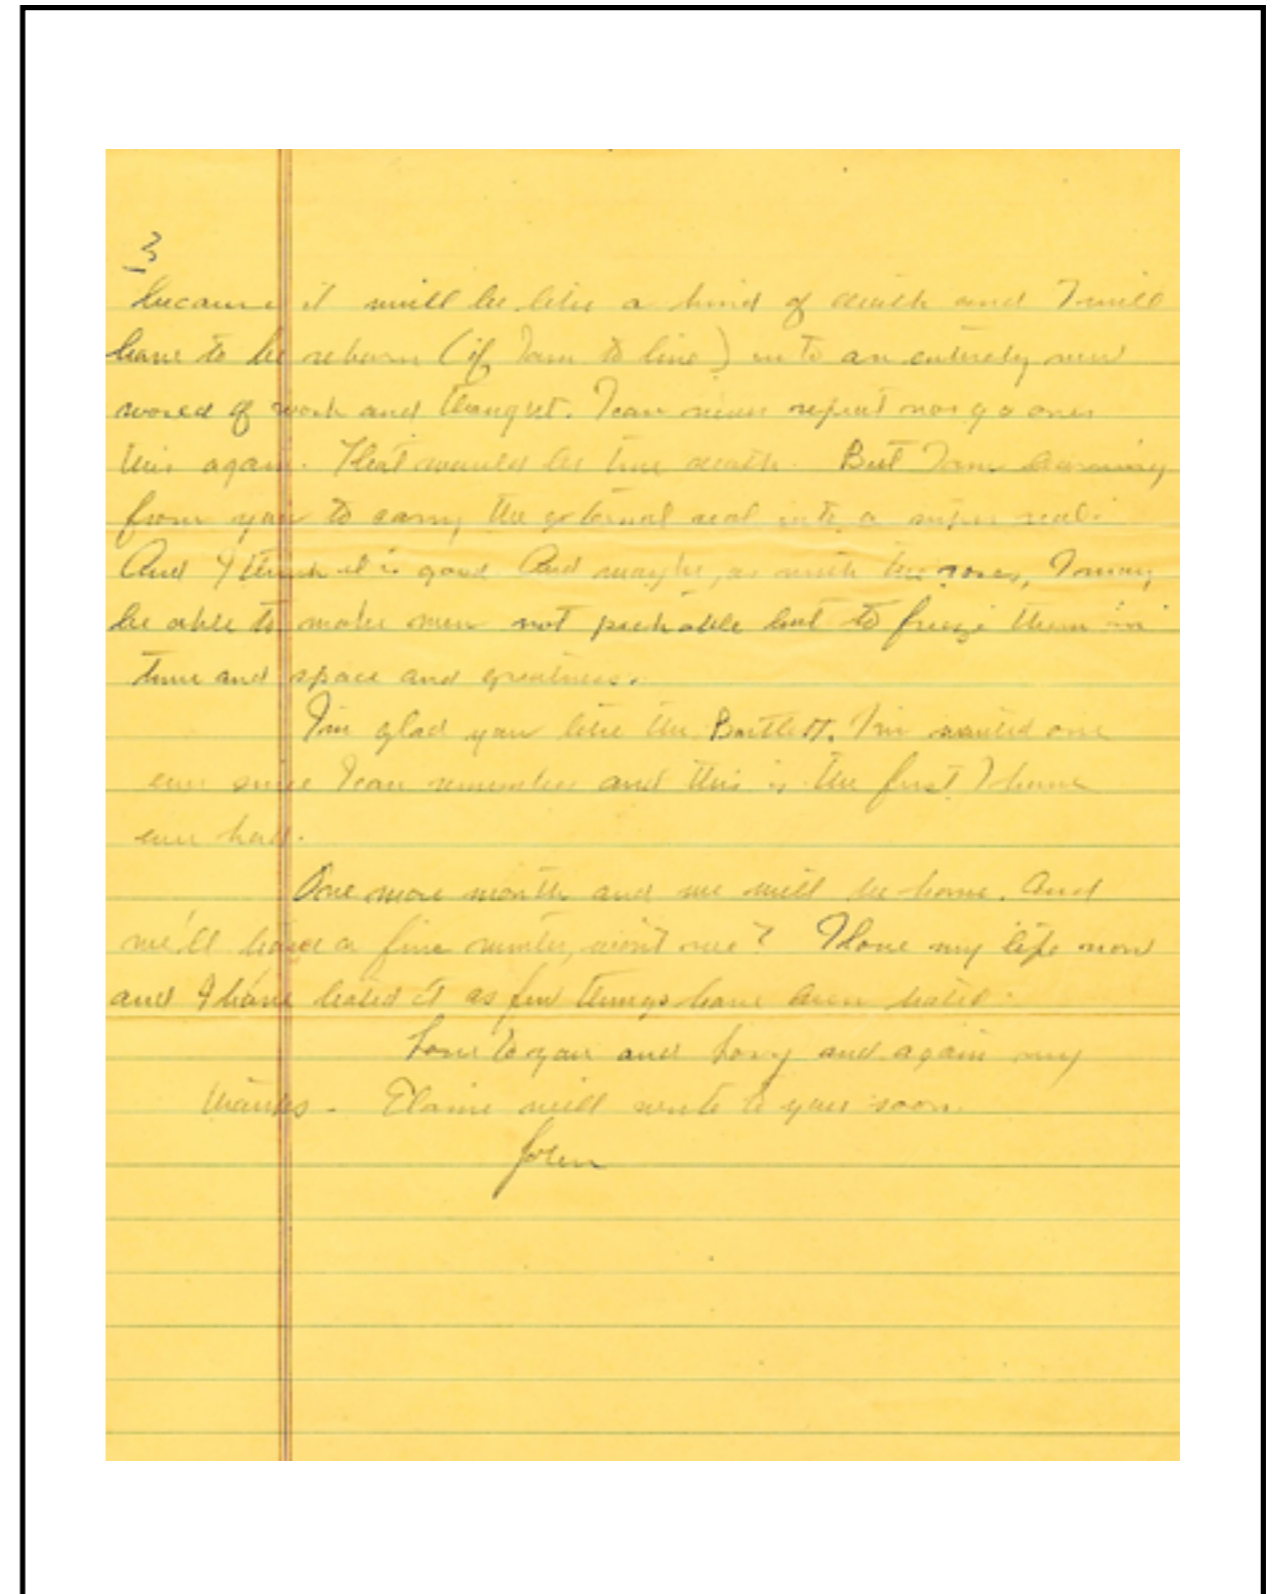 3
because it will be like a kind of death and I will
have to be reborn (if I am to live) into an entirely new
world of work and thought. I can never repeat nor go over
this again. That would be true death. But I am learning
from you to carry the external real into a super real.
And I think it is good. And maybe, as with the roses, I may
be able to make men not pickable but to freeze them in
time and space and greatness.
I'm glad you like the Bartlett. I've wanted one
ever since I can remember and this is the first I have
ever had.
One more month and we will be home. And
we'll have a fine winter, won't we? I love my life now
and I have hated it as few things have been hated.
Love to you and and again my
thanks - Elaine will write to you soon.
John